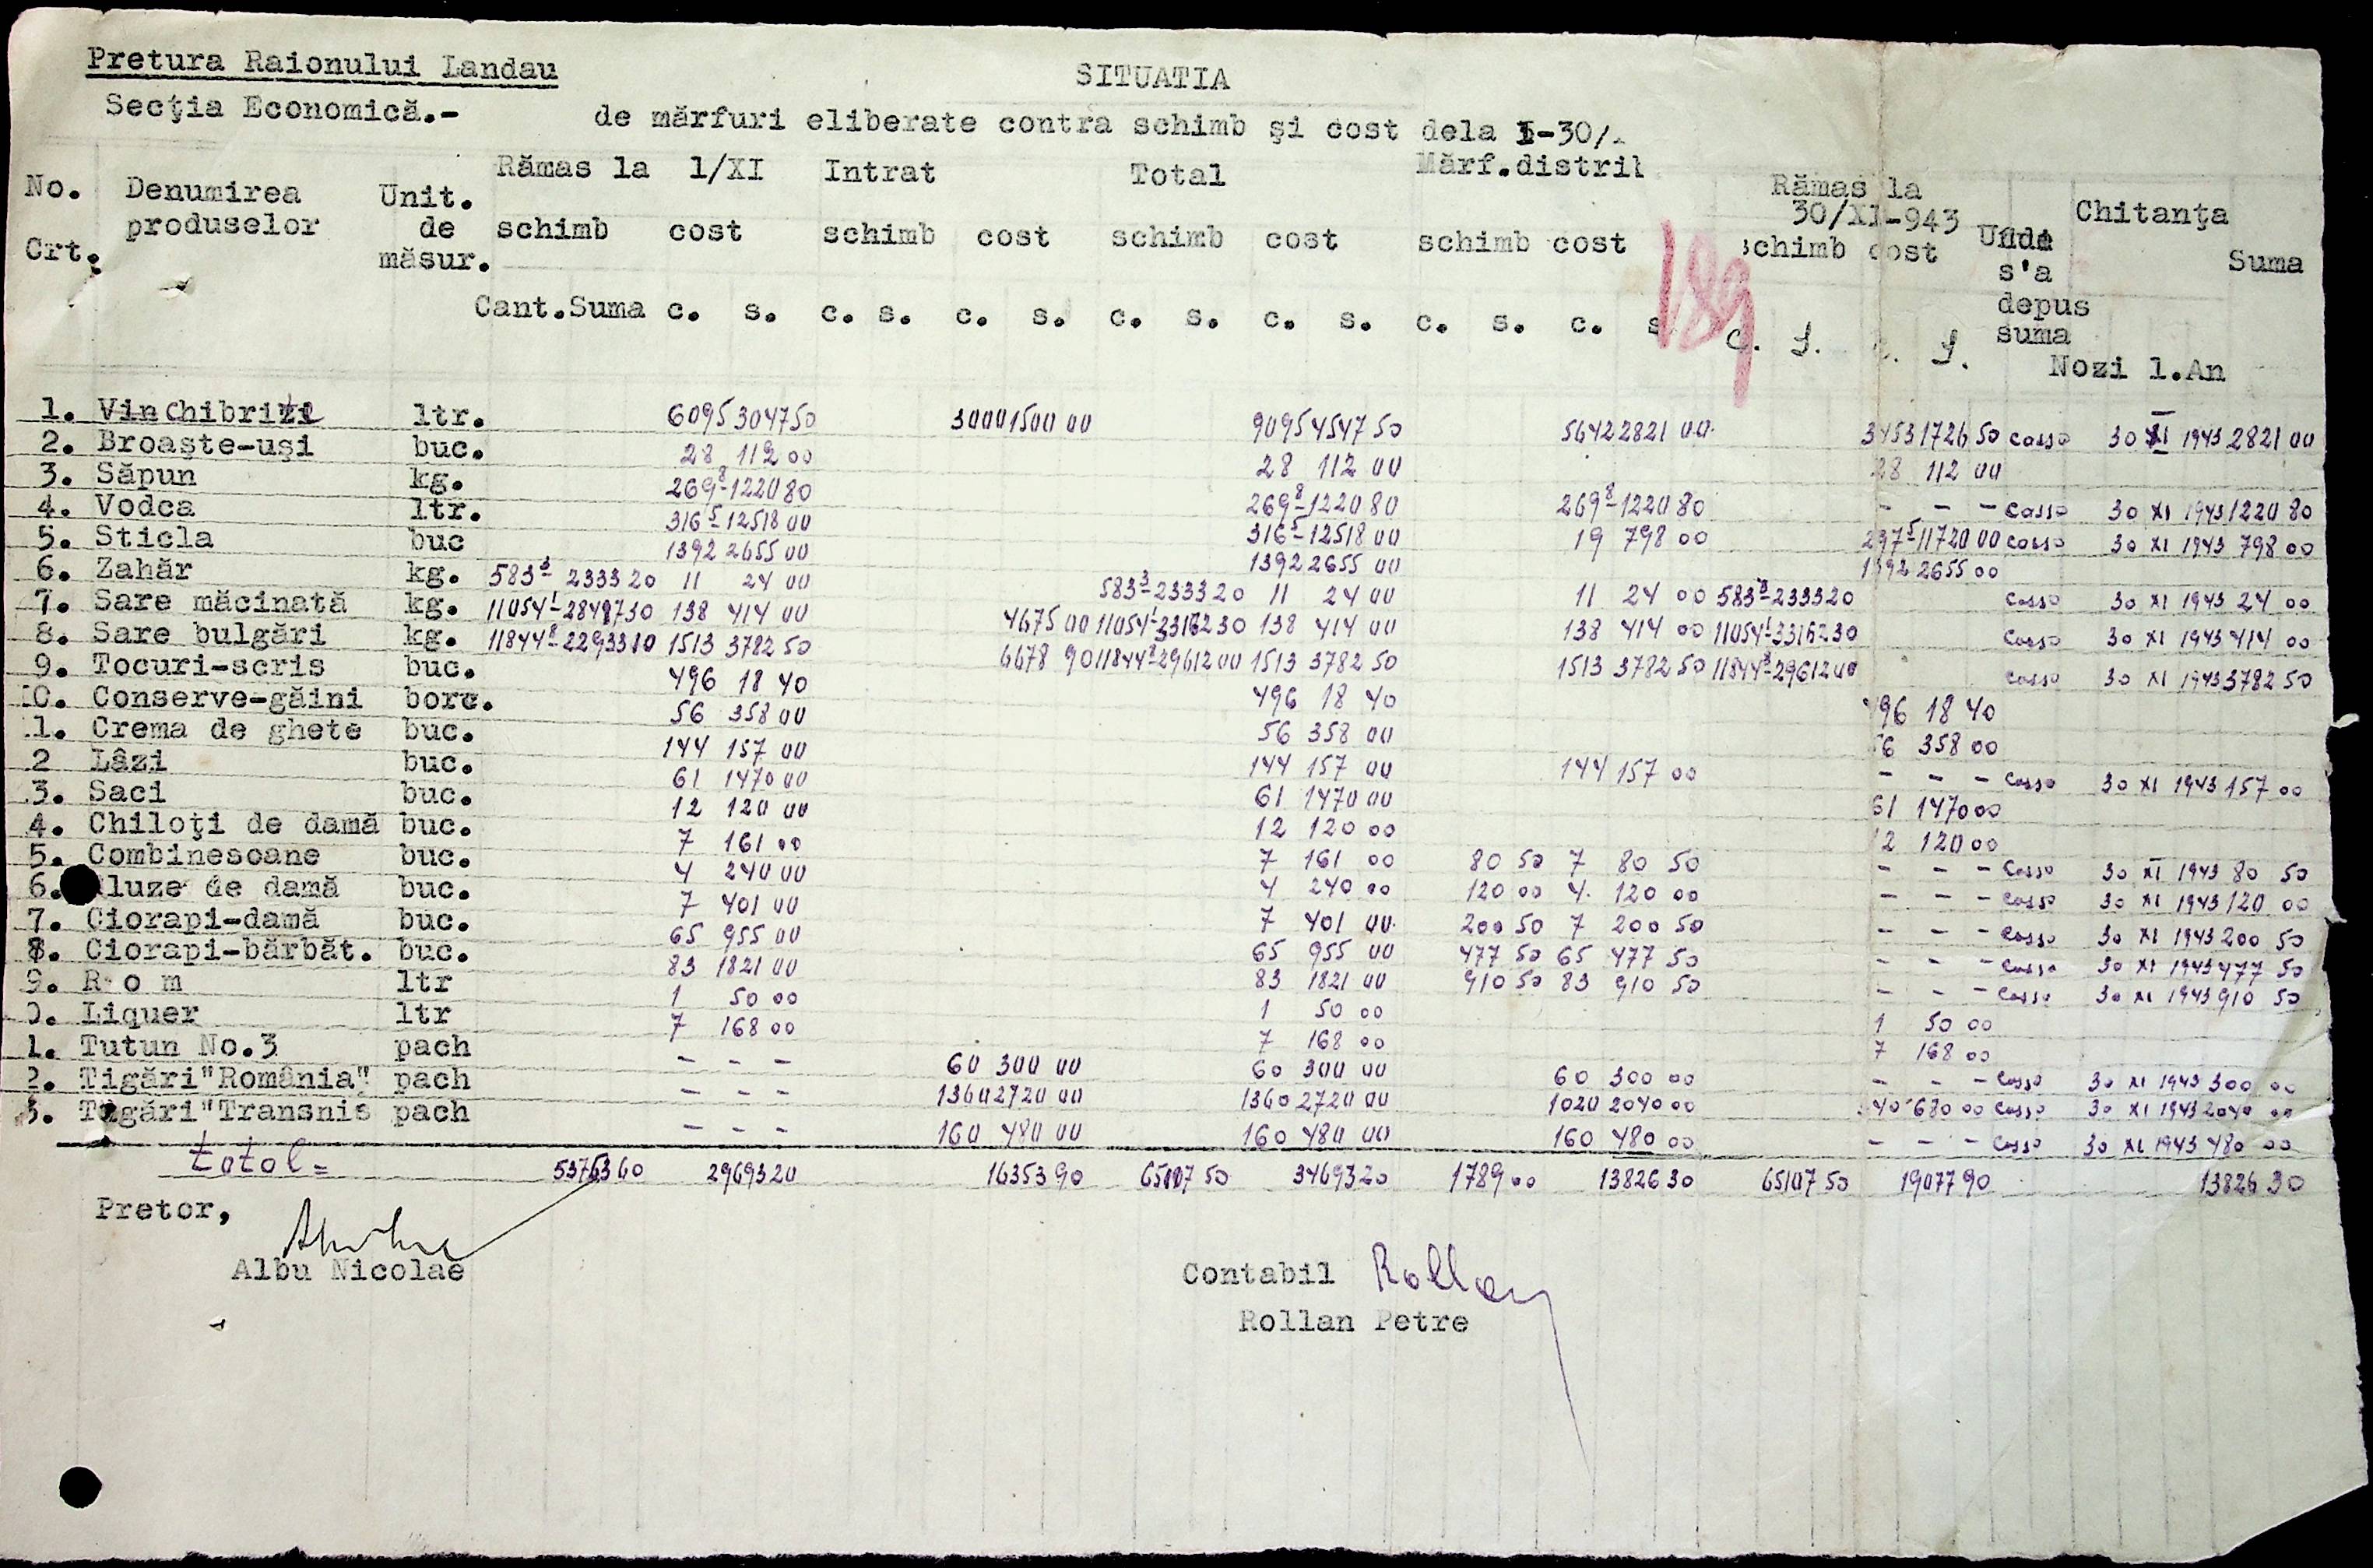 Pretura Raionului Landau
Secţia Economică.-
SITUATIA
de mărfuri eliberate contra schimb şi cost dela I-30/
No. Crt. Denumirea produselor Unit. de măsur. Rămas la 1/XI Intrat Total Mărf.distri Rămas la 30/XI-943 Unde s'a depus suma Chitanţa
schimb cost schimb cost schimb cost schimb cost schimb cost Suma
Cant. Suma c. s. c. s. c. s. c. s. c. s. c. s. c. s. c. s. c. s. No zi l. An
189
1. Vin Chibrite ltr. 6095 3047 50 3000 1500 00 9095 4547 50 5642 2821 00 3453 1726 50 casso 30 XI 1943 2821 00
2. Broaşte-uşi buc. 28 112 00 28 112 00 28 112 00
3. Săpun kg. 269 8- 1220 80 269 8- 1220 80 269 8- 1220 80 - - - casso 30 XI 1943 1220 80
4. Vodca ltr. 316 5- 12518 00 316 5- 12518 00 19 798 00 297 5- 11720 00 casso 30 XI 1943 798 00
5. Sticla buc 1392 2655 00 1392 2655 00 1392 2655 00
6. Zahăr kg. 583 3- 2333 20 11 24 00 583 3- 2333 20 11 24 00 11 24 00 583 3- 2333 20 casso 30 XI 1943 24 00
7. Sare măcinată kg. 11054 1- 28487 30 138 414 00 4675 00 11054 1- 33162 30 138 414 00 138 414 00 11054 1- 33162 30 casso 30 XI 1943 414 00
8. Sare bulgări kg. 11844 8- 22933 10 1513 3782 50 6678 90 11844 8- 29612 00 1513 3782 50 1513 3782 50 11844 8- 29612 00 casso 30 XI 1943 3782 50
9. Tocuri-scris buc. 496 18 40 496 18 40 496 18 40
10. Conserve-găini borc. 56 358 00 56 358 00 56 358 00
1. Crema de ghete buc. 144 157 00 144 157 00 144 157 00 - - - casso 30 XI 1943 157 00
2 Lăzi buc. 61 1470 00 61 1470 00 61 1470 00
3. Saci buc. 12 120 00 12 120 00 12 120 00
4. Chiloţi de damă buc. 7 161 00 7 161 00 80 50 7 80 50 - - - casso 30 XI 1943 80 50
5. Combinesoane buc. 4 240 00 4 240 00 120 00 4 120 00 - - - casso 30 XI 1943 120 00
6. luze de damă buc. 7 401 00 7 401 00 200 50 7 200 50 - - - casso 30 XI 1943 200 50
7. Ciorapi-damă buc. 65 955 00 65 955 00 477 50 65 477 50 - - - casso 30 XI 1943 477 50
8. Ciorapi-bărbăt. buc. 83 1821 00 83 1821 00 910 50 83 910 50 - - - casso 30 XI 1943 910 50
9. R o m ltr 1 50 00 1 50 00 1 50 00
0. Liquer ltr 7 168 00 7 168 00 7 168 00
1. Tutun No.3 pach - - - 60 300 00 60 300 00 60 300 00 - - - casso 30 XI 1943 300 00
2. Tigări"România" pach - - - 1360 2720 00 1360 2720 00 1020 2040 00 340 680 00 casso 30 XI 1943 2040 00
3. Tigări"Transnis pach - - - 160 480 00 160 480 00 160 480 00 - - - casso 30 XI 1943 480 00
total= 53753 60 29693 20 16353 90 65107 50 34693 20 1789 00 13826 30 65107 50 19077 90 13826 30
Pretor,
Albu Nicolae
Contabil Rollan
Rollan Petre